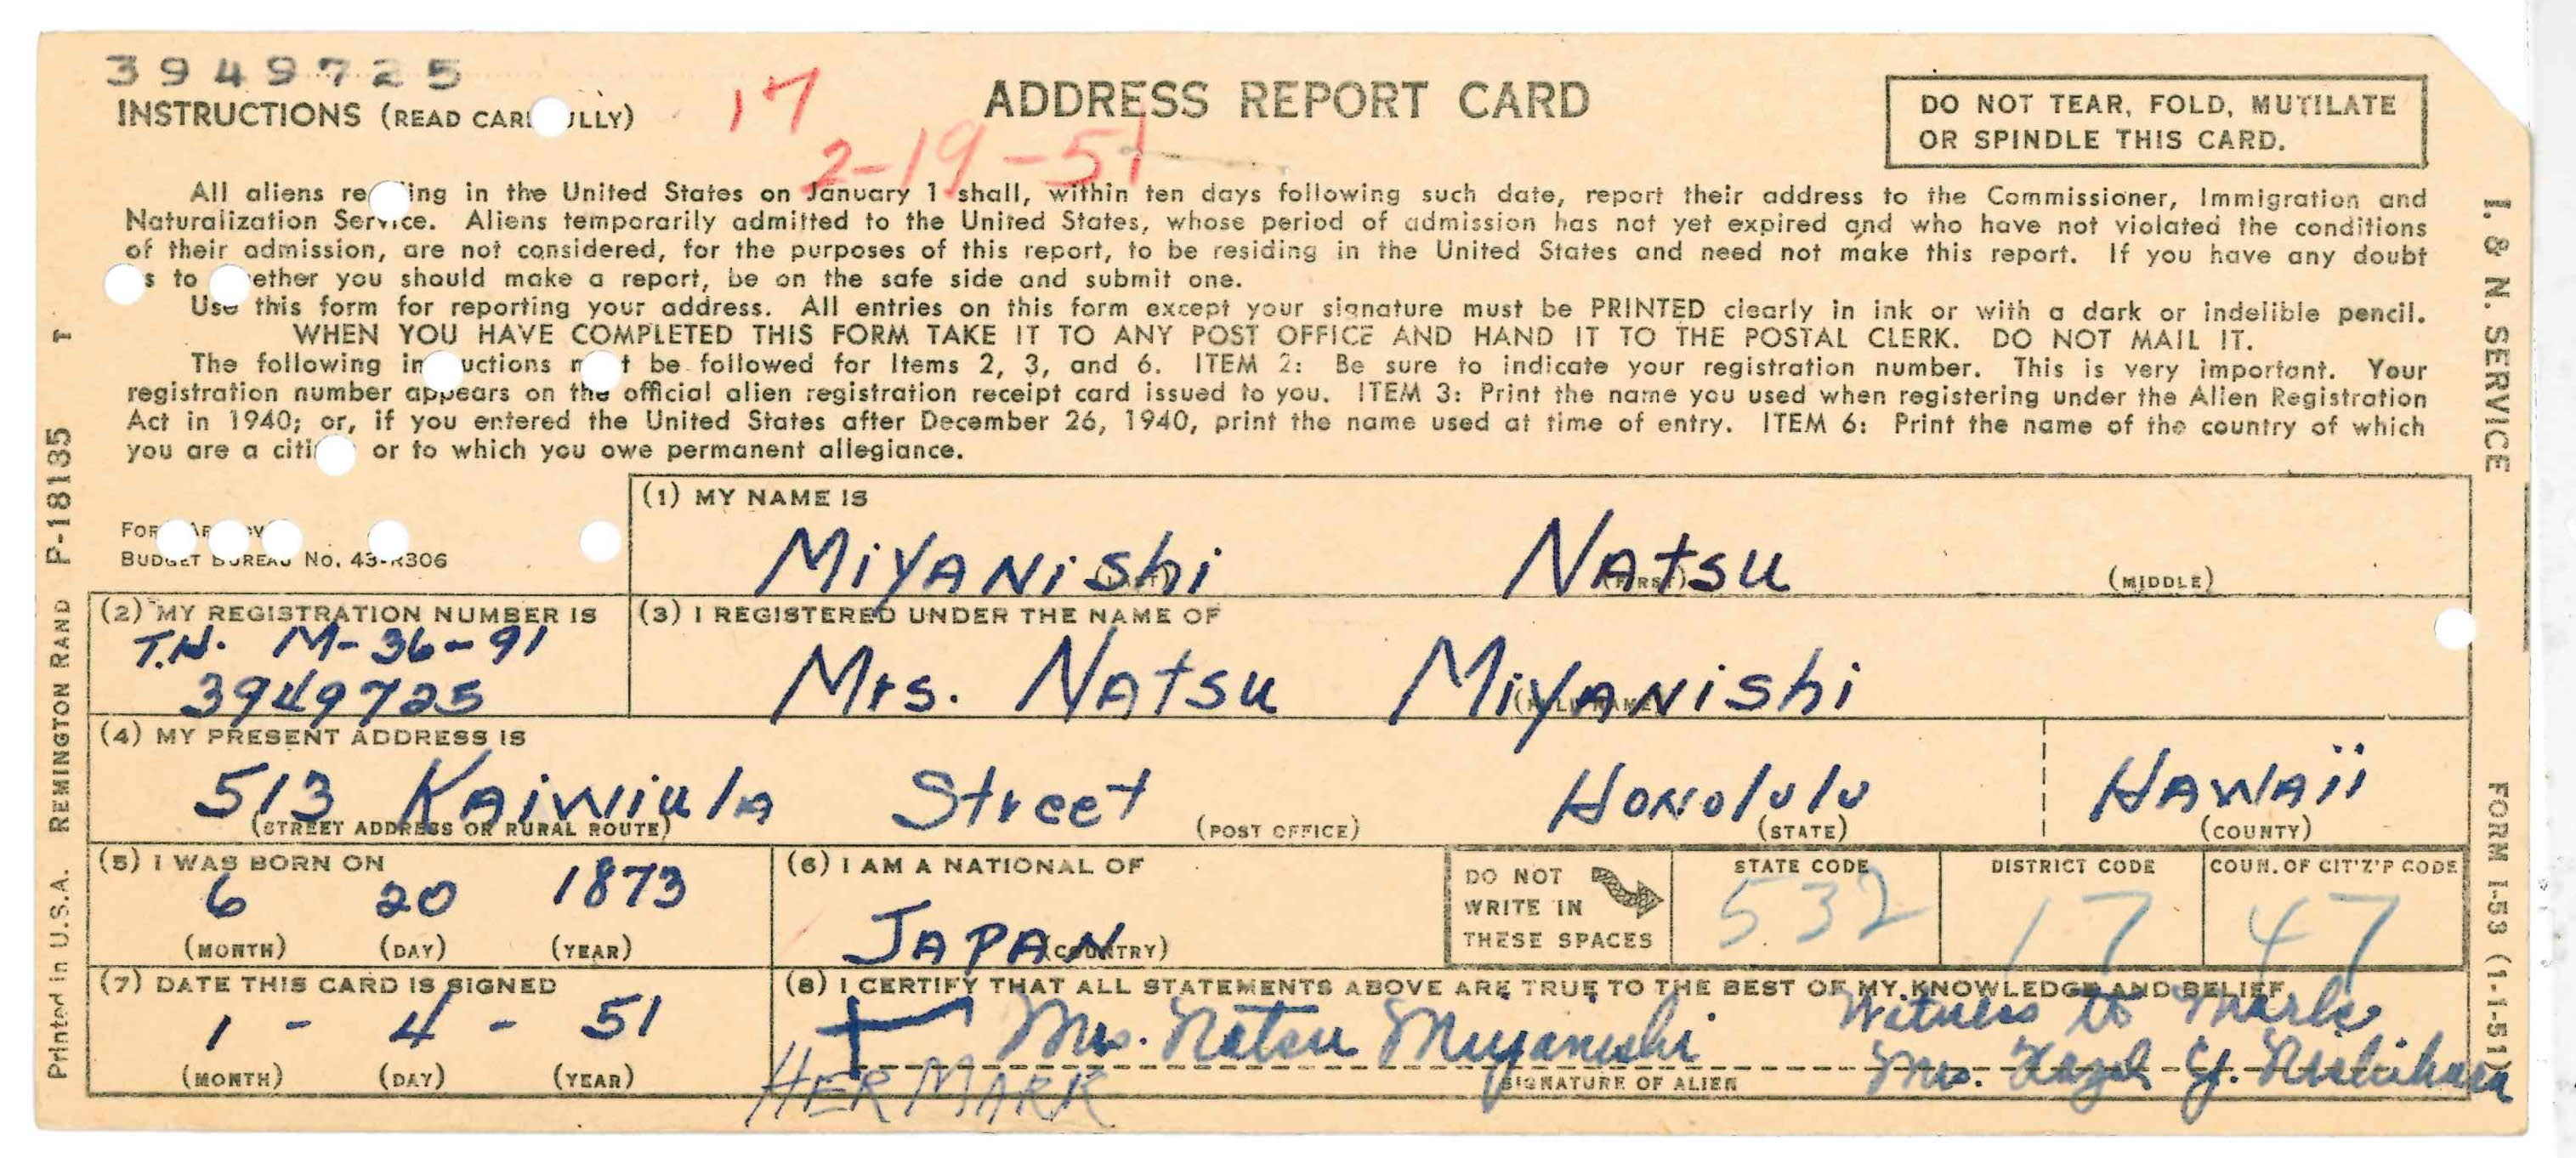 3949725
INSTRUCTIONS (READ CAR ULLY)
17
ADDRESS REPORT CARD
2-19-51
DO NOT TEAR, FOLD, MUTILATE
OR SPINDLE THIS CARD.
All aliens re ing in the United States on January 1 shall, within ten days following such date, report their address to the Commissioner, Immigration and
Naturalization Service. Aliens temporarily admitted to the United States, whose period of admission has not yet expired and who have not violated the conditions
of their admission, are not considered, for the purposes of this report, to be residing in the United States and need not make this report. If you have any doubt
s to ether you should make a report, be on the safe side and submit one.
Use this form for reporting your address. All entries on this form except your signature must be PRINTED clearly in ink or with a dark or indelible pencil.
WHEN YOU HAVE COMPLETED THIS FORM TAKE IT TO ANY POST OFFICE AND HAND IT TO THE POSTAL CLERK. DO NOT MAIL IT.
The following in uctions m t be followed for Items 2, 3, and 6. ITEM 2: Be sure to indicate your registration number. This is very important. Your
registration number appears on the official alien registration receipt card issued to you. ITEM 3: Print the name you used when registering under the Alien Registration
Act in 1940; or, if you entered the United States after December 26, 1940, print the name used at time of entry. ITEM 6: Print the name of the country of which
you are a citi or to which you owe permanent allegiance.
FOR
BUDGET BUREAU NO. 43-R306
(1) MY NAME IS
MiYANishi NAtsu
(LAST) (FIRST) (MIDDLE)
(2) MY REGISTRATION NUMBER IS
T.H. M-36-91
3949725
(3) I REGISTERED UNDER THE NAME OF
Mrs. NAtsu MiYANishi
(FULL NAME)
(4) MY PRESENT ADDRESS IS
513 KAiWiulA Street HONOlulu HAWAii
(STREET ADDRESS OR RURAL ROUTE) (POST OFFICE) (STATE) (COUNTY)
(5) I WAS BORN ON
6 20 1873
(MONTH) (DAY) (YEAR)
(6) I AM A NATIONAL OF
JAPAN
(COUNTRY)
DO NOT
WRITE IN
THESE SPACES
STATE CODE
532
DISTRICT CODE
17
COUN. OF CIT'Z'P CODE
47
(7) DATE THIS CARD IS SIGNED
1 - 4 - 51
(MONTH) (DAY) (YEAR)
(8) I CERTIFY THAT ALL STATEMENTS ABOVE ARE TRUE TO THE BEST OF MY KNOWLEDGE AND BELIEF.
Mrs. Natsu Miyanishi
HER MARK
SIGNATURE OF ALIEN
Witness to Mark
Mrs. Hazel Y. Nishihara
Printed in U.S.A. REMINGTON RAND P-18135 T
I. & N. SERVICE FORM I-53 (1-1-51)